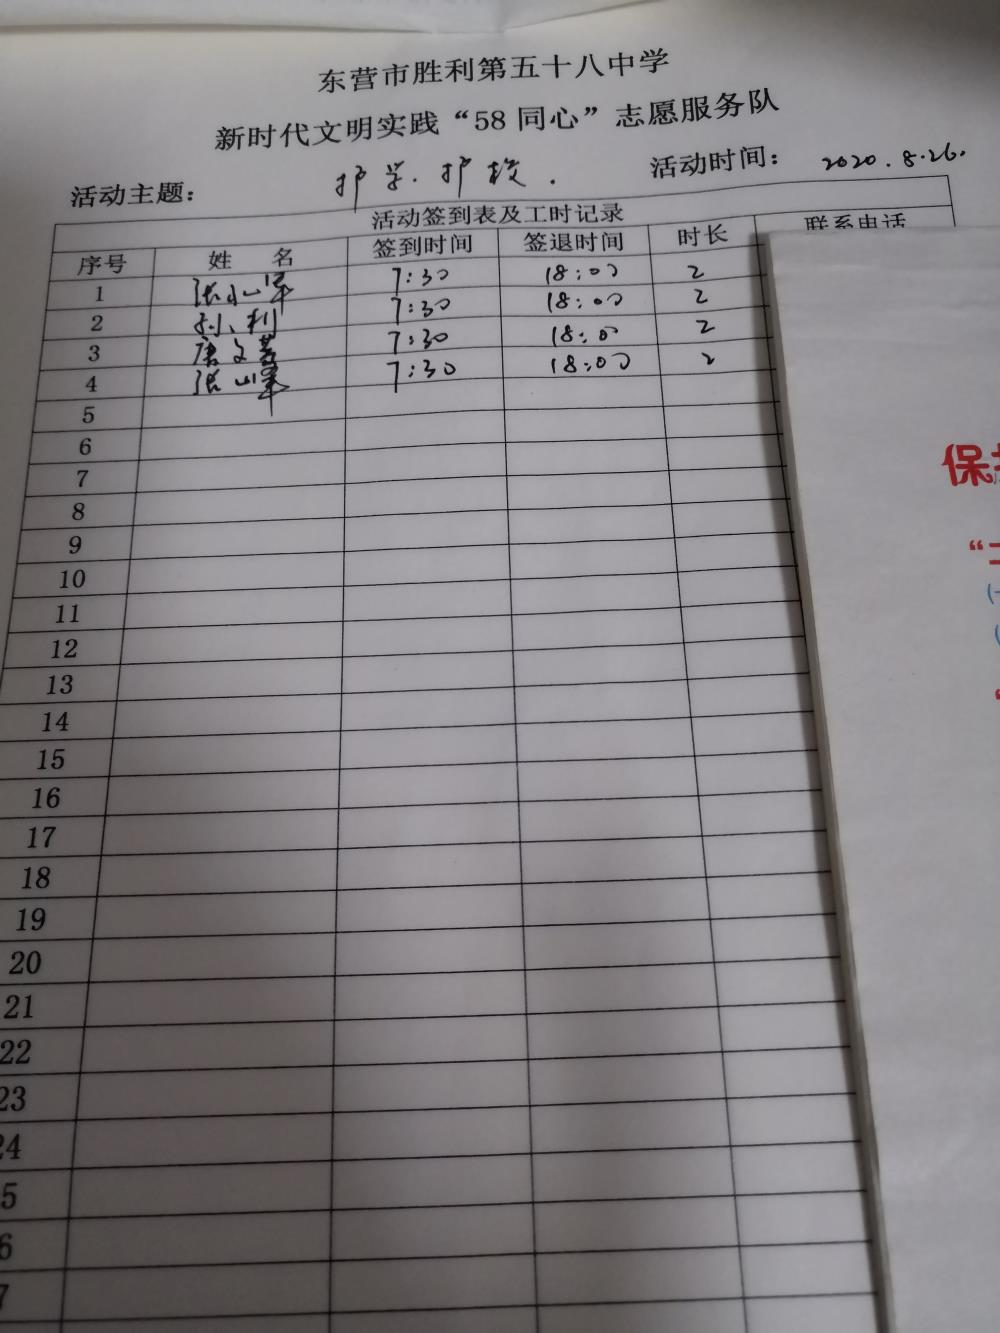 东营市胜利第五十八中学
新时代文明实践“58同心”志愿服务队
活动主题： 护学.护校. 活动时间： 2020.8.26.
活动签到表及工时记录
序号 姓 名 签到时间 签退时间 时长 联系电话
1 7:30 18:00 2
2 孙利 7:30 18:00 2
3 唐文 7:30 18:0 2
4 张 7:30 18:00 2
5
6
7
8
9
10
11
12
13
14
15
16
17
18
19
20
21
22
23
24
5
6
7
保
“